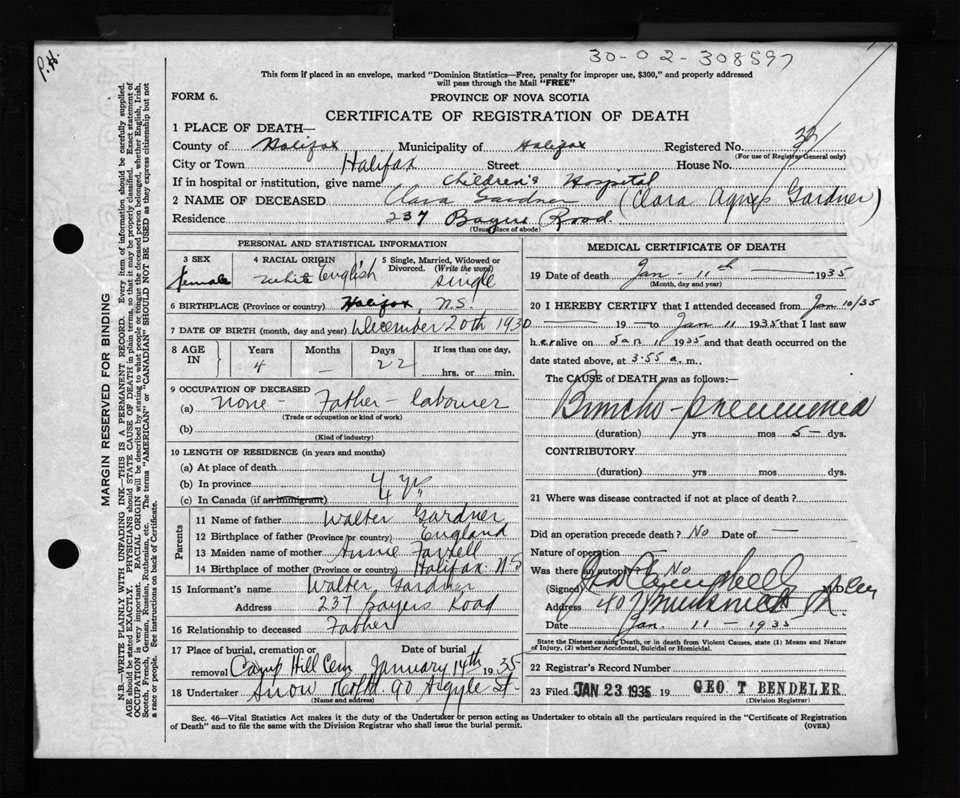 30-02-308597
P.H.
This form if placed in an envelope, marked "Dominion Statistics—Free, penalty for improper use, $300," and properly addressed
will pass through the Mail "FREE"
FORM 6.
PROVINCE OF NOVA SCOTIA
CERTIFICATE OF REGISTRATION OF DEATH
1 PLACE OF DEATH—
County of Halifax Municipality of Halifax Registered No. 33
(For use of Registrar-General only)
City or Town Halifax Street House No.
If in hospital or institution, give name Children's Hospital
2 NAME OF DECEASED Clara Gardner (Clara Agnes Gardner)
Residence 237 Bayers Road
(Usual place of abode)
MARGIN RESERVED FOR BINDING
N.B.—WRITE PLAINLY WITH UNFADING INK—THIS IS A PERMANENT RECORD. Every item of information should be carefully supplied.
AGE should be stated EXACTLY. PHYSICIANS should STATE CAUSE OF DEATH in plain terms, so that it may be properly classified. Exact statement of
OCCUPATION is very important. RACIAL ORIGIN will be described by stating to what people or tongue the deceased person belonged, whether English, Irish,
Scotch, French, German, Russian, Ruthenian, etc. The terms "AMERICAN" or "CANADIAN" SHOULD NOT BE USED as they express citizenship but not
a race or people. See instructions on back of Certificate.
PERSONAL AND STATISTICAL INFORMATION
3 SEX
female
4 RACIAL ORIGIN
white English
5 Single, Married, Widowed or
Divorced. (Write the word)
single
6 BIRTHPLACE (Province or country) Halifax, N.S.
7 DATE OF BIRTH (month, day and year) December 20th 1930
8 AGE IN
Years Months Days If less than one day,
4 — 22 hrs. or min.
9 OCCUPATION OF DECEASED
(a) none - Father - labourer
(Trade or occupation or kind of work)
(b)
(Kind of industry)
10 LENGTH OF RESIDENCE (in years and months)
(a) At place of death
(b) In province 4 yrs
(c) In Canada (if an immigrant) 4 "
Parents
11 Name of father Walter Gardner
12 Birthplace of father (Province or country) England
13 Maiden name of mother Annie Farrell
14 Birthplace of mother (Province or country) Halifax N S
15 Informant's name Walter Gardner
Address 237 Bayers Road
16 Relationship to deceased Father
17 Place of burial, cremation or Date of burial
removal Camp Hill Cem January 14th 1935
18 Undertaker Snow 90 Argyle St
(Name and address)
MEDICAL CERTIFICATE OF DEATH
19 Date of death Jan - 11th — 1935
(Month, day and year)
20 I HEREBY CERTIFY that I attended deceased from Jan 10/35
— 19 — to Jan 11 1935 that I last saw
her alive on Jan 11 1935 and that death occurred on the
date stated above, at 3.55 a. m.
The CAUSE of DEATH was as follows:—
Broncho-pneumonia
(duration) yrs mos 5- dys.
CONTRIBUTORY
(duration) yrs mos dys.
21 Where was disease contracted if not at place of death?
Did an operation precede death? No Date of —
Nature of operation
Was there an autopsy? No
(Signed) Campbell
Address 40
Date Jan. 11 - 1935
State the Disease causing Death, or in death from Violent Causes, state (1) Means and Nature
of Injury, (2) whether Accidental, Suicidal or Homicidal.
22 Registrar's Record Number
23 Filed JAN 23 1935 19 GEO. T BENDELER
(Division Registrar)
Sec. 46—Vital Statistics Act makes it the duty of the Undertaker or person acting as Undertaker to obtain all the particulars required in the "Certificate of Registration
of Death" and to file the same with the Division Registrar who shall issue the burial permit.
(OVER)